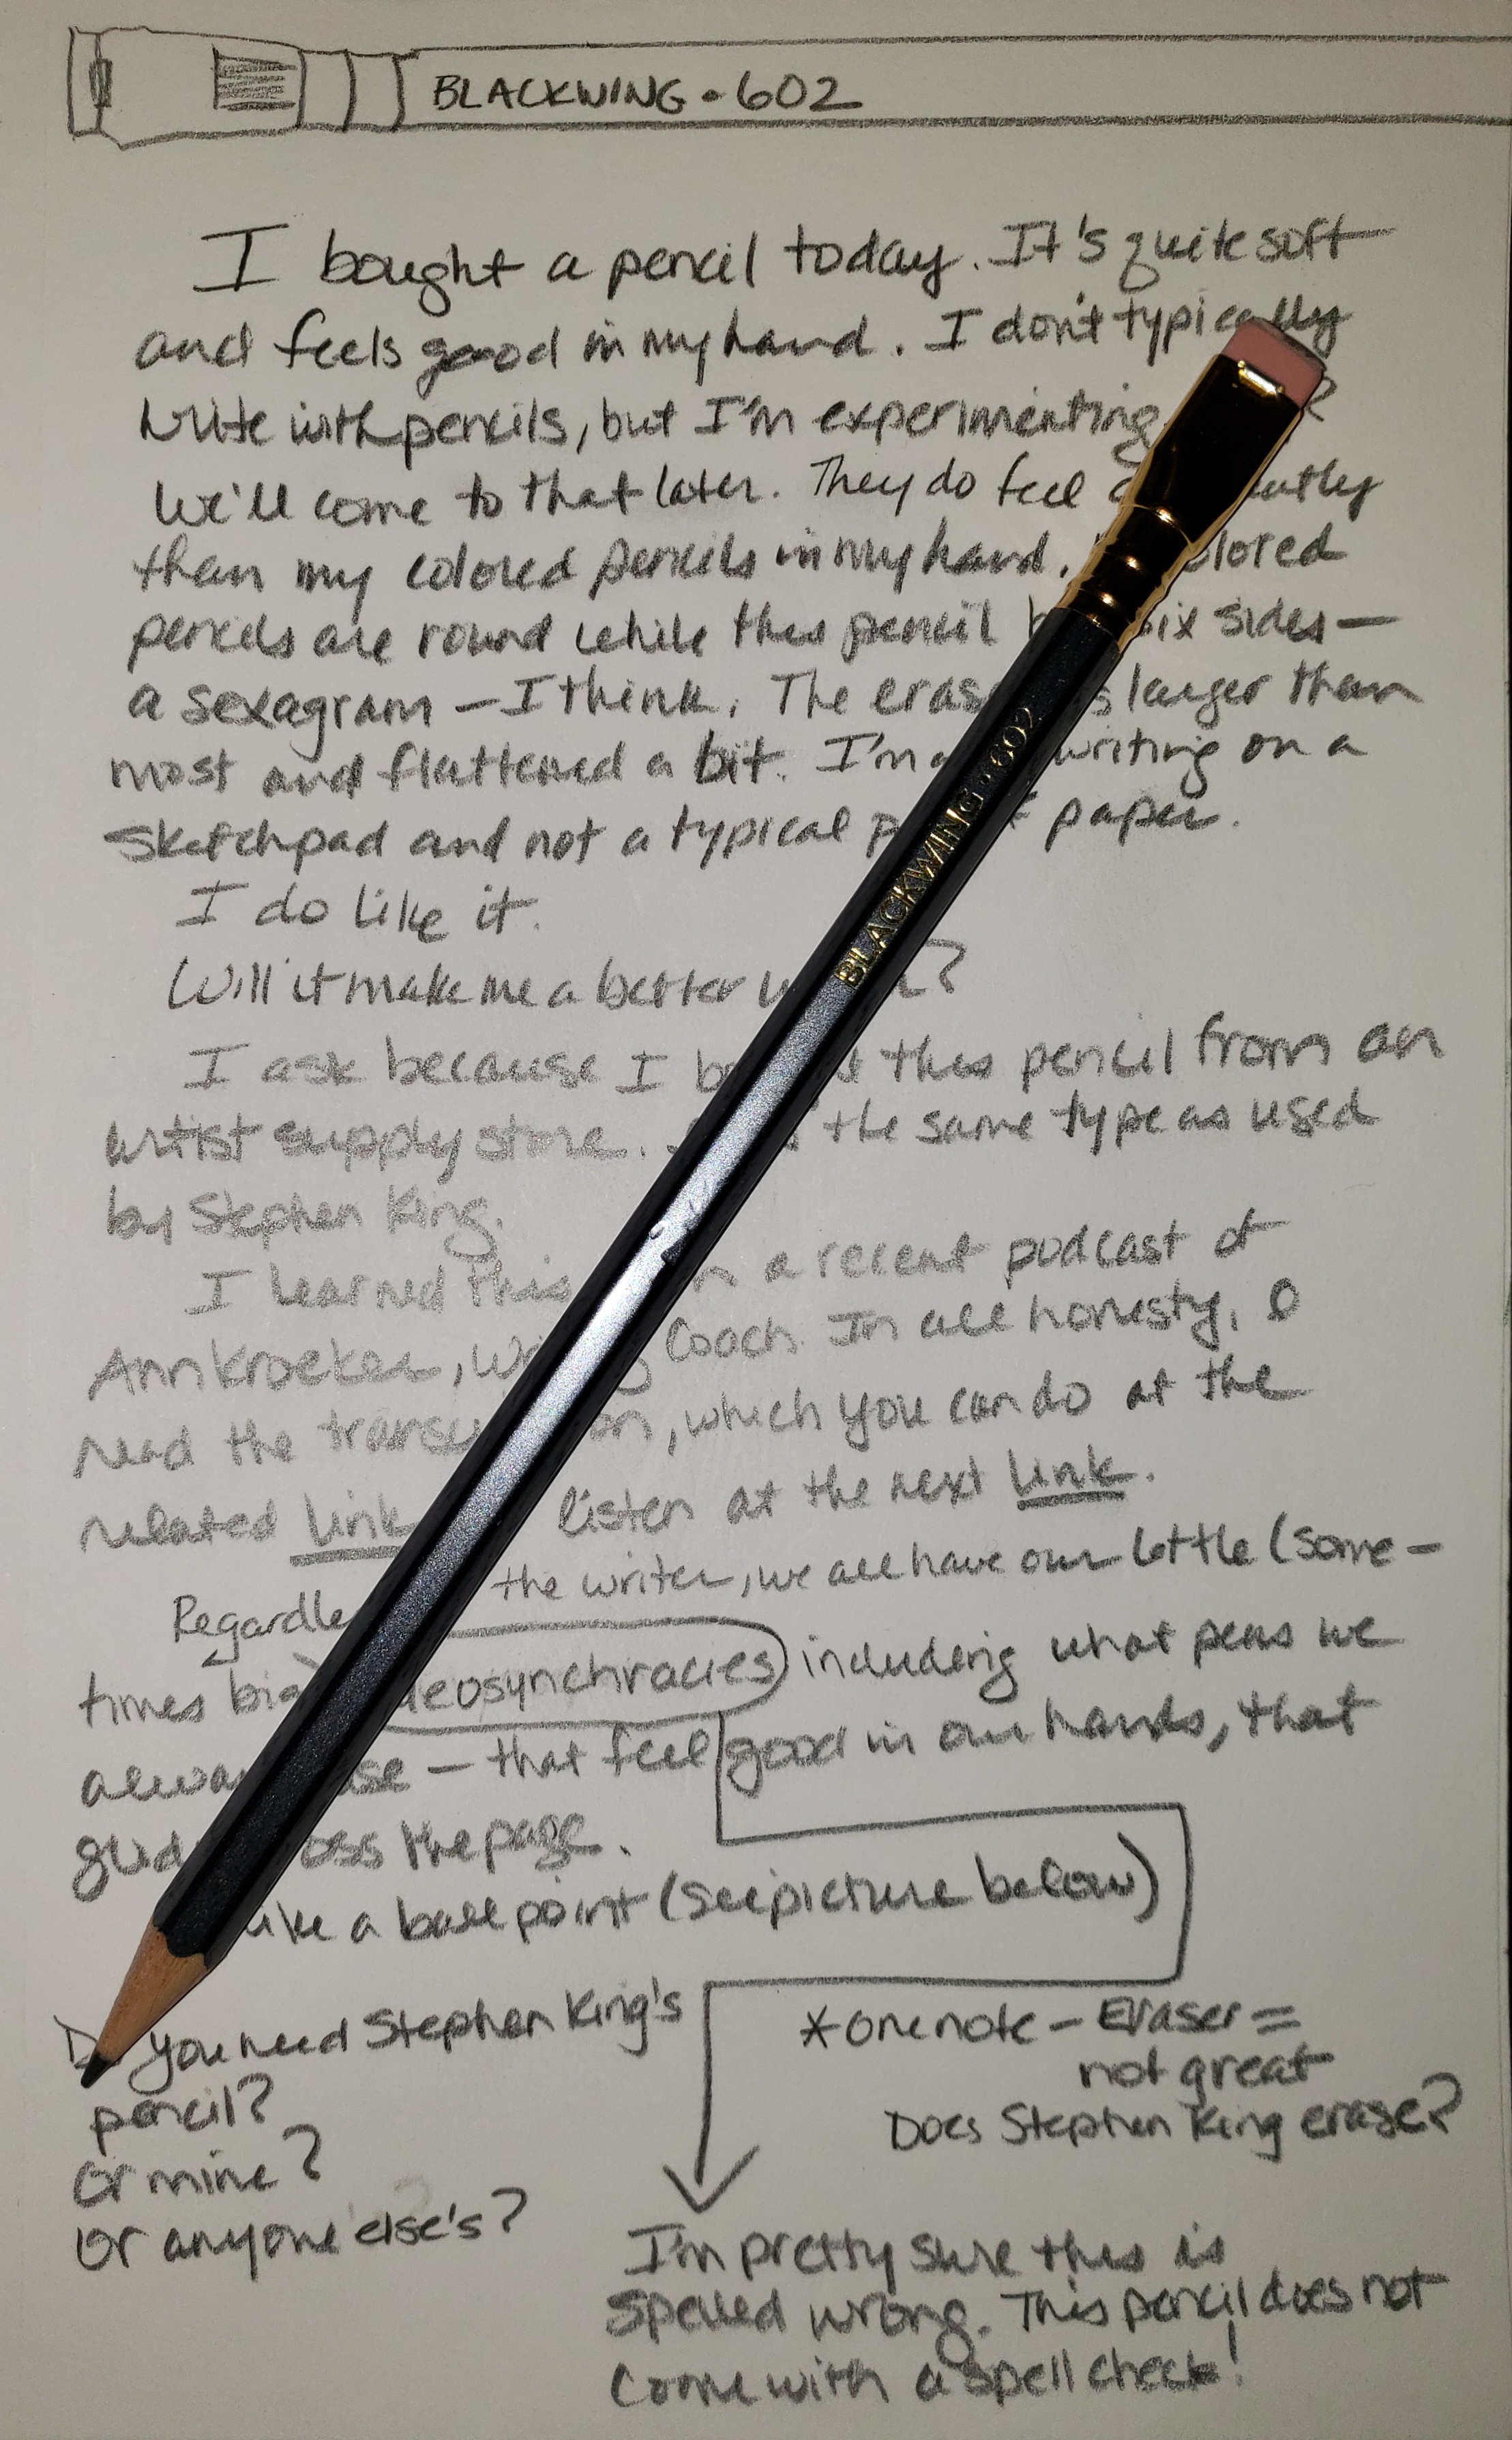 BLACKWING • 602
I bought a pencil today. It's quite soft
and feels good in my hand. I don't typically
write with pencils, but I'm experimenting
We'll come to that later. They do feel
than my colored pencils in my hand.
pencils are round while this pencil six sides—
a sexagram — I think. The larger than
most and flattened a bit. I'm writing on a
sketchpad and not a typical paper.
I do like it.
Will it make me a better
I ask because I this pencil from an
artist supply store. the same type as used
by Stephen King.
I learned this a recent podcast of
Ann Kroeker, Coach. In all honesty, I
read the which you can do at the
related link listen at the next link.
the writer, we all have our little (some-
times including what pens we
— that feel good in our hands, that
the page.
a ball point (see picture below)
you need Stephen King's
pencil?
Or mine?
Or anyone else's?
* one note — Eraser =
not great
Does Stephen King erase?
I'm pretty sure this is
spelled wrong. This pencil does not
come with a spell check!
BLACKWING • 602